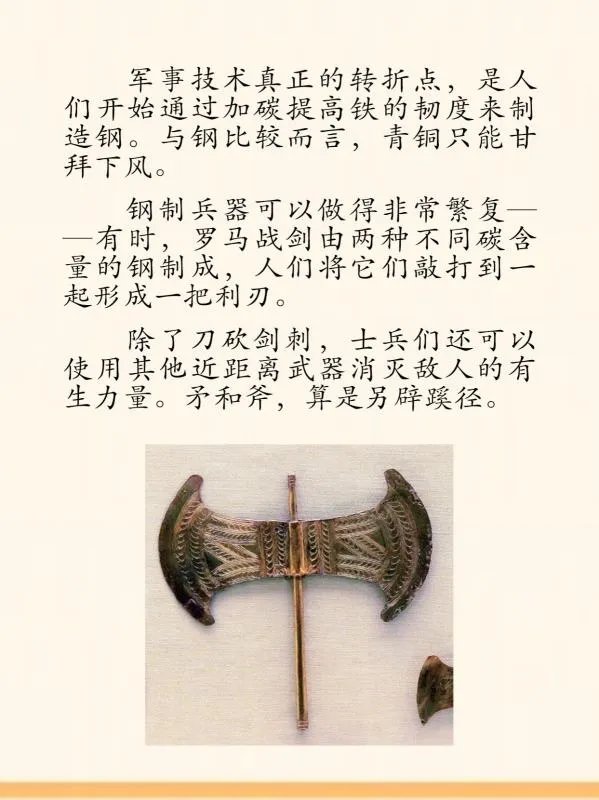 军事技术真正的转折点，是人
们开始通过加碳提高铁的韧度来制
造钢。与钢比较而言，青铜只能甘
拜下风。
钢制兵器可以做得非常繁复—
—有时，罗马战剑由两种不同碳含
量的钢制成，人们将它们敲打到一
起形成一把利刃。
除了刀砍剑刺，士兵们还可以
使用其他近距离武器消灭敌人的有
生力量。矛和斧，算是另辟蹊径。